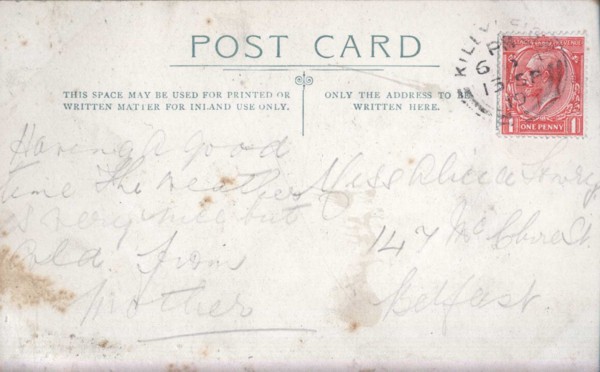 POST CARD
THIS SPACE MAY BE USED FOR PRINTED OR
WRITTEN MATTER FOR INLAND USE ONLY.
ONLY THE ADDRESS TO BE
WRITTEN HERE.
POSTAGE REVENUE
ONE PENNY
1 1
Having a good
time The weather
is very nice but
cold. from
Mother
Miss
147 McClure St
Belfast.